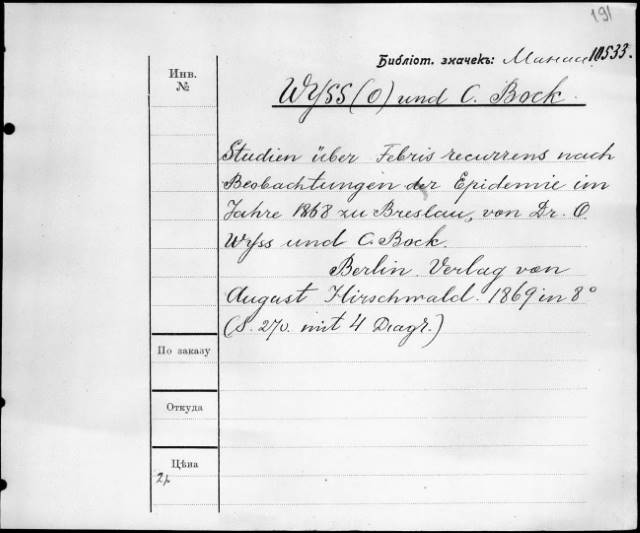 191
Библіот. значекъ: 10533.
Инв.
№
Wyss (O) und C. Bock.
Studien über Febris recurrens nach
Beobachtungen der Epidemie im
Jahre 1868 zu Breslau, von Dr. O
Wyss und C. Bock.
Berlin. Verlag von
August Hirschwald. 1869 in 8°
(S. 270. mit 4 Diagr.)
По заказу
Откуда
Цѣна
2р